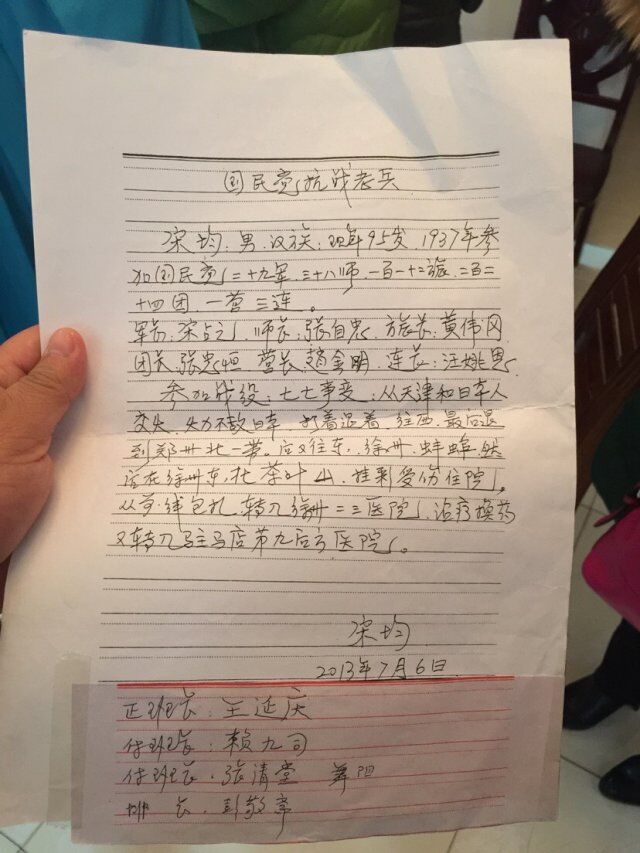 国民党抗战老兵
宋均.男.汉族.现年95岁.1937年参
加国民党二十九军.三十八师.一百一十二旅.二百二
十四团.一营三连。
军长.宋占之.师长.张自忠.旅长.黄伟冈
团长.张忠恒 营长.赵金明.连长:汪姚思
参加战役:七七事变:从天津和日本人
交火.火力不敌日本.打着退着.往西.最后退
到郑州北一带。应又往东.徐州.蚌埠.然
后在徐州东.北茶叶山.挂彩受伤住院。
从前线包扎.转入徐州一二三医院.治疗换药
又转入驻马店第九后方医院。
宋均
2013年7月6日
正班长:王延庆
付班长:赖九司
付班长.张清堂 舞阳
排 长.彭敬章